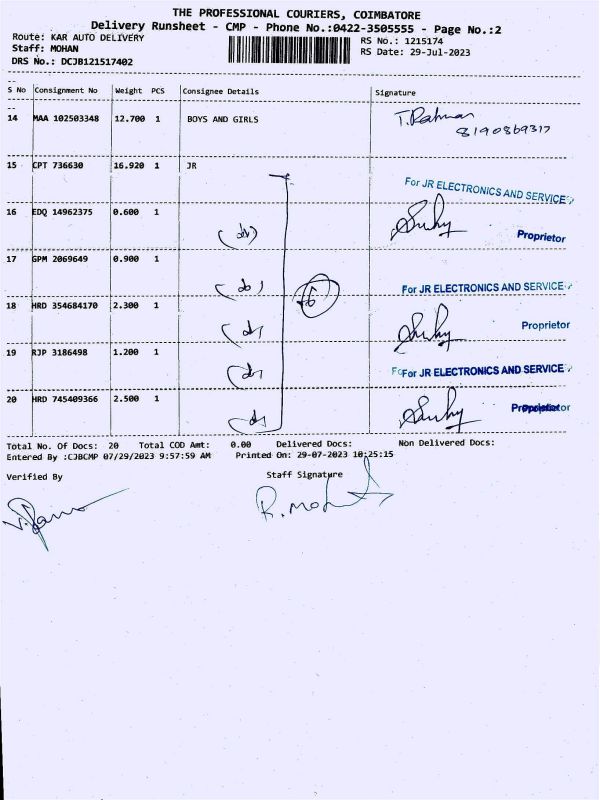 THE PROFESSIONAL COURIERS, COIMBATORE
Delivery Runsheet - CMP - Phone No.:0422-3505555 - Page No.:2
Route: KAR AUTO DELIVERY
RS No.: 1215174
Staff: MOHAN
RS Date: 29-Jul-2023
DRS No.: DCJB121517402
S No Consignment No Weight PCS Consignee Details Signature
14 MAA 102503348 12.700 1 BOYS AND GIRLS T. Rahman
8190869317
15 CPT 736630 16.920 1 JR
For JR ELECTRONICS AND SERVICE
16 EDQ 14962375 0.600 1
Proprietor
17 GPM 2069649 0.900 1
For JR ELECTRONICS AND SERVICE
18 HRD 354684170 2.300 1
Proprietor
19 RJP 3186498 1.200 1
For JR ELECTRONICS AND SERVICE
20 HRD 745409366 2.500 1
Proprietor
Total No. Of Docs: 20 Total COD Amt: 0.00 Delivered Docs: Non Delivered Docs:
Entered By :CJBCMP 07/29/2023 9:57:59 AM Printed On: 29-07-2023 10:25:15
Verified By Staff Signature
R. Moh